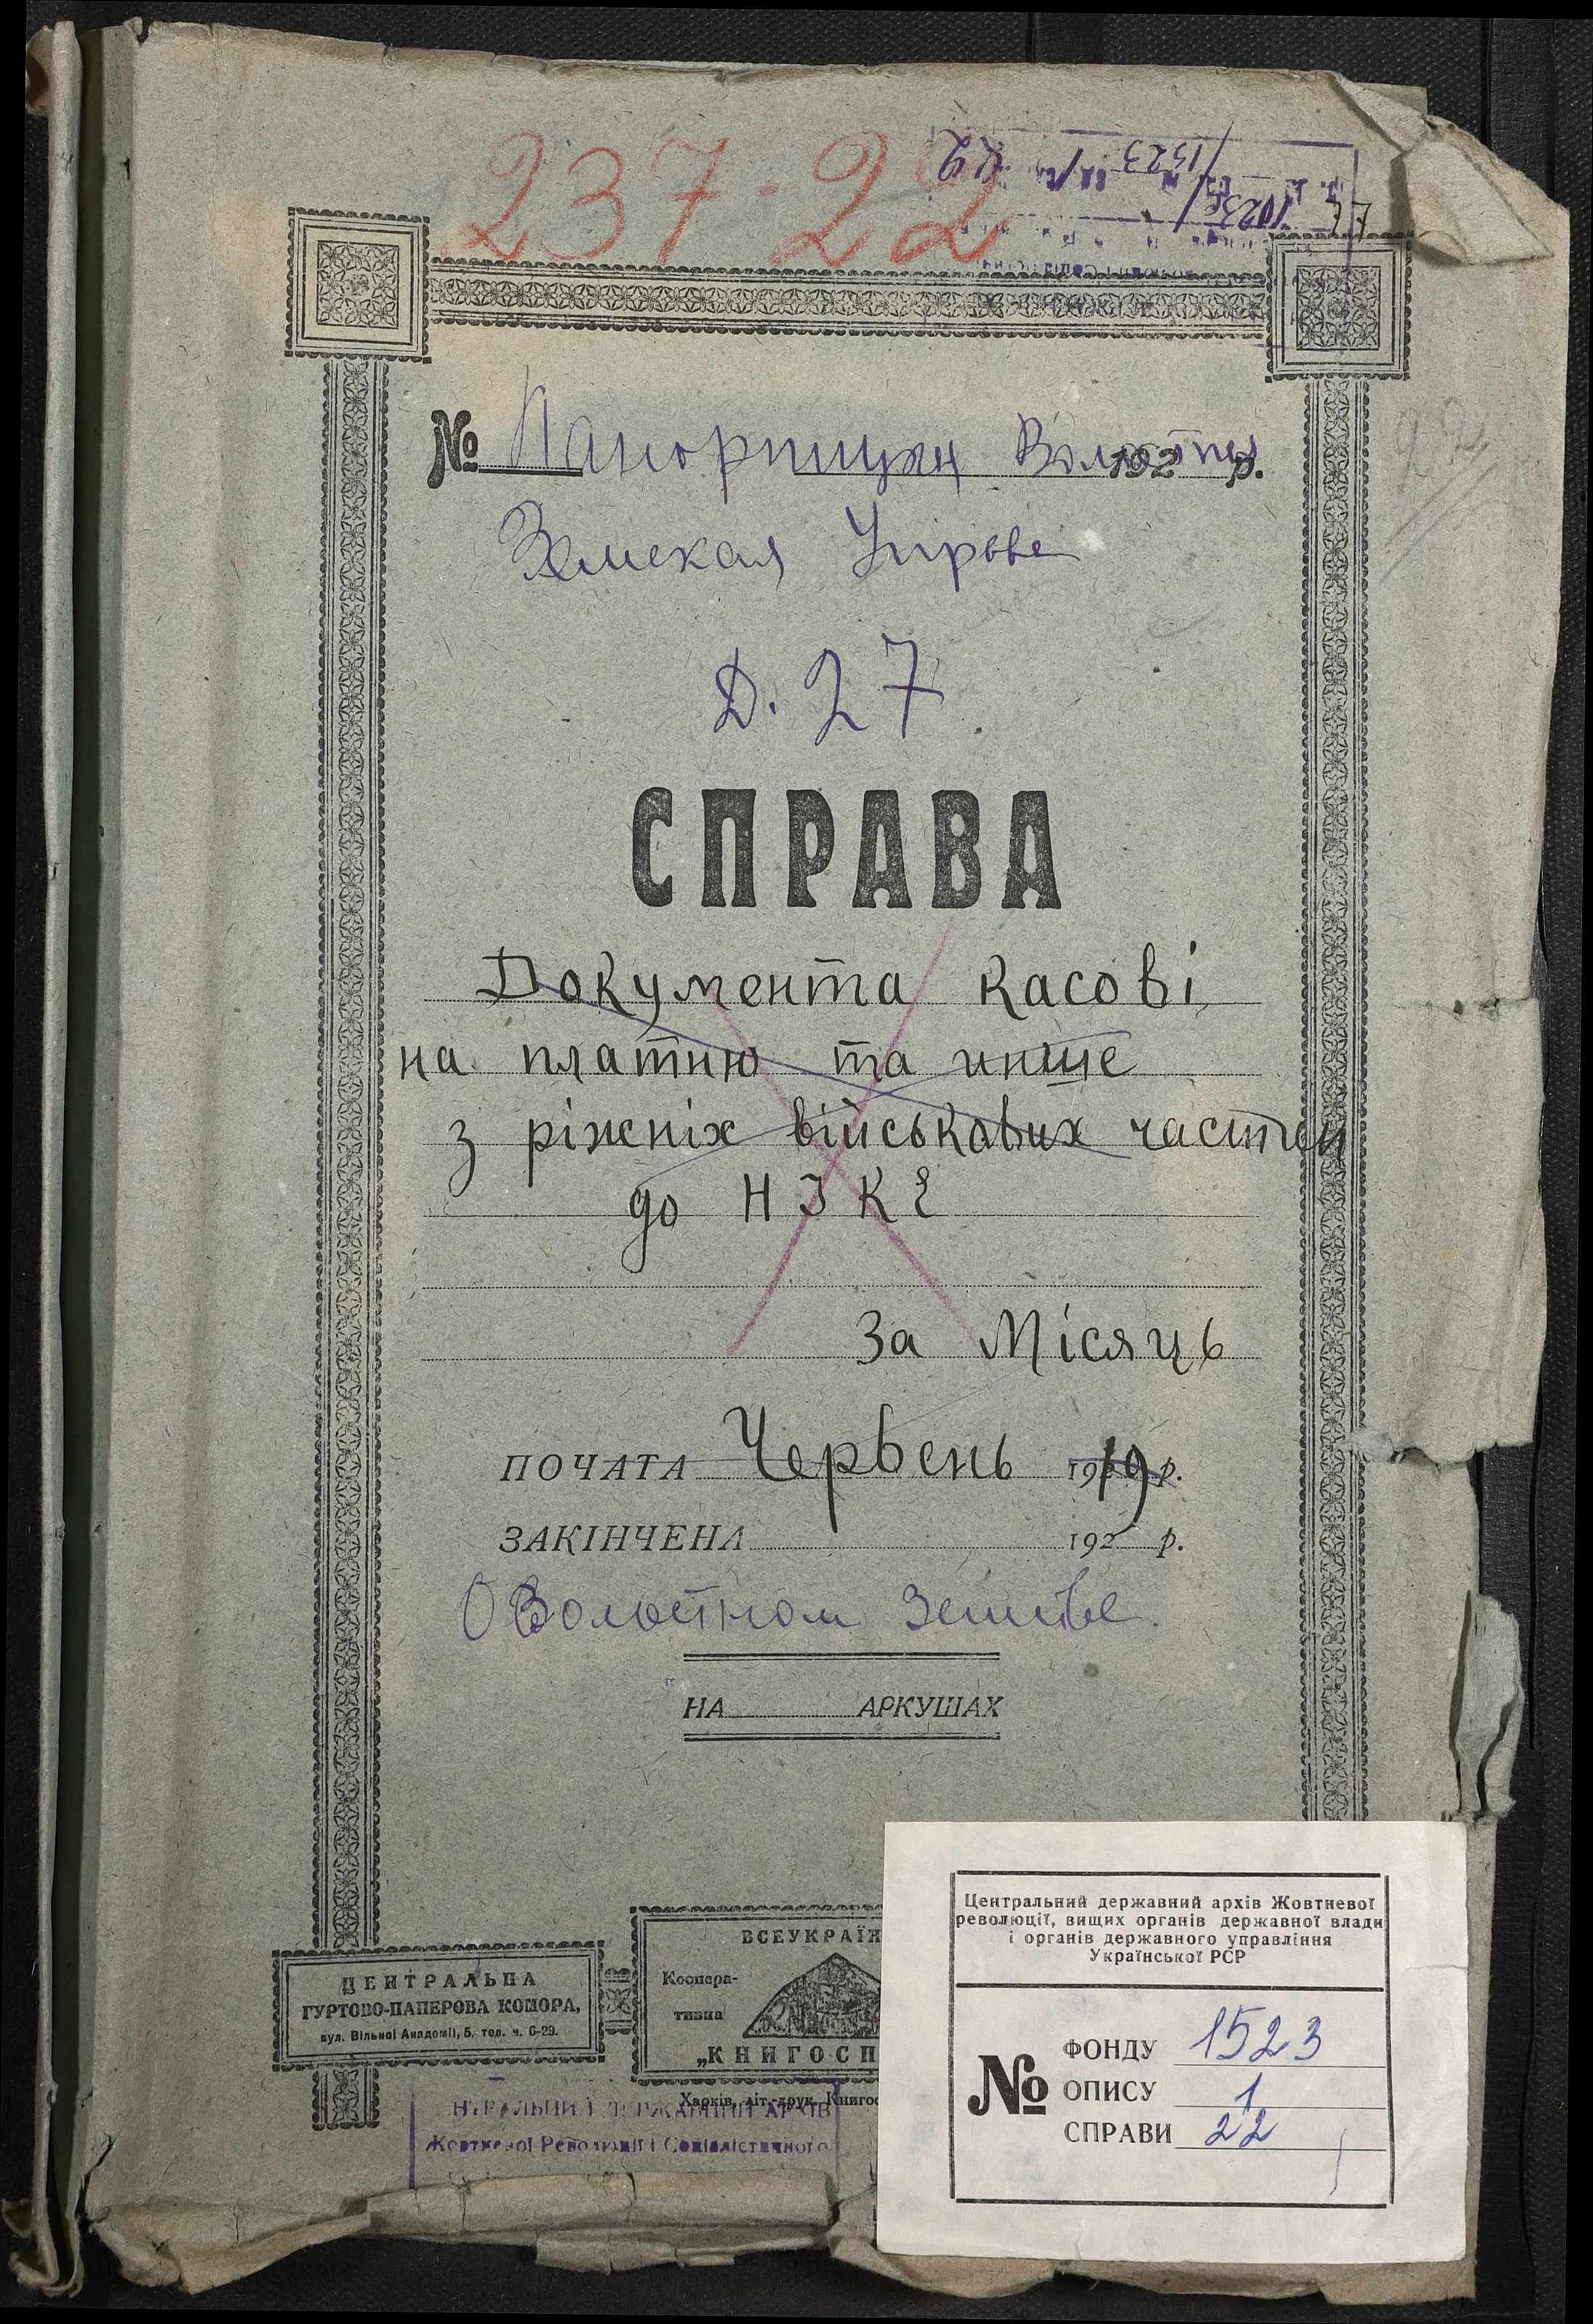 237-22
№ 192 р.
Земская
Д. 27
СПРАВА
Документа касові
на платню та инше
з ріжніх військових частей
до НІКЕ
За Місяць
ПОЧАТА Червень 1919 р.
ЗАКІНЧЕНА 192 р.
О Волостном
НА АРКУШАХ
ЦЕНТРАЛЬНА
ГУРТОВО-ПАПЕРОВА КОМОРА,
вул. Вільної Академії, 5, тел. ч. 6-29.
ВСЕУКРАЇН
Коопера-
тивна
„КНИГОСП
Харків, літ.-друк. Книгос
ДЕРЖАВНИЙ АРХІВ
Жовтневої Революції і Соціалістичного
Центральний державний архів Жовтневої
революції, вищих органів державної влади
і органів державного управління
Української РСР
№
ФОНДУ 1523
ОПИСУ 1
СПРАВИ 22